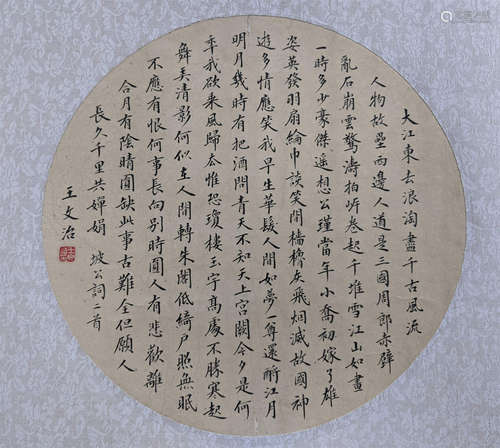 大江東去浪淘盡千古風流
人物故壘西邊人道是三國周郎赤壁
亂石崩雲驚濤拍岸卷起千堆雪江山如畫
一時多少豪傑遙想公瑾當年小喬初嫁了雄
姿英發羽扇綸巾談笑間檣櫓灰飛烟滅故國神
遊多情應笑我早生華髮人間如夢一尊還酹江月
明月幾時有把酒問青天不知天上宮闕今夕是何
年我欲乘風歸去惟恐瓊樓玉宇高處不勝寒起
舞弄清影何似在人間轉朱閣低綺戶照無眠
不應有恨何事長向別時圓人有悲歡離
合月有陰晴圓缺此事古難全但願人
長久千里共嬋娟 坡公詞二首
王文治